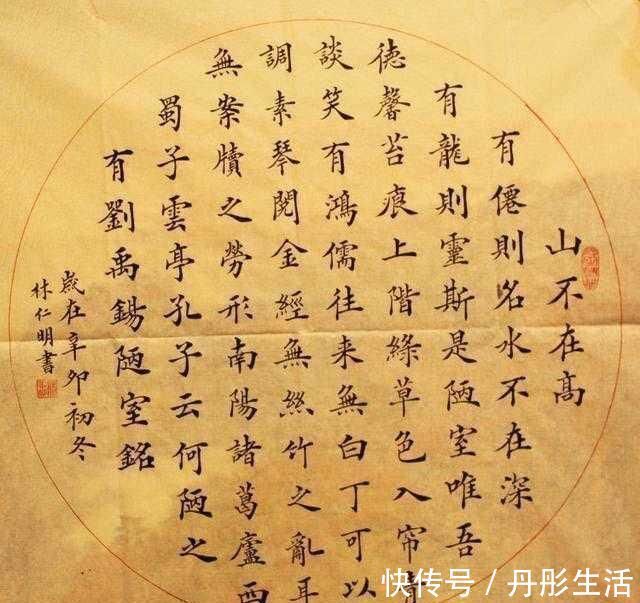 山不在高
有僊則名水不在深
有龍則靈斯是陋室唯吾
德馨苔痕上階綠草色入帘青
談笑有鴻儒往来無白丁可以
調素琴閱金經無絲竹之亂耳
無案牘之勞形南陽諸葛廬西
蜀子雲亭孔子云何陋之
有劉禹錫陋室銘
歲在辛卯初冬
林仁明書
快传号 / 丹彤生活